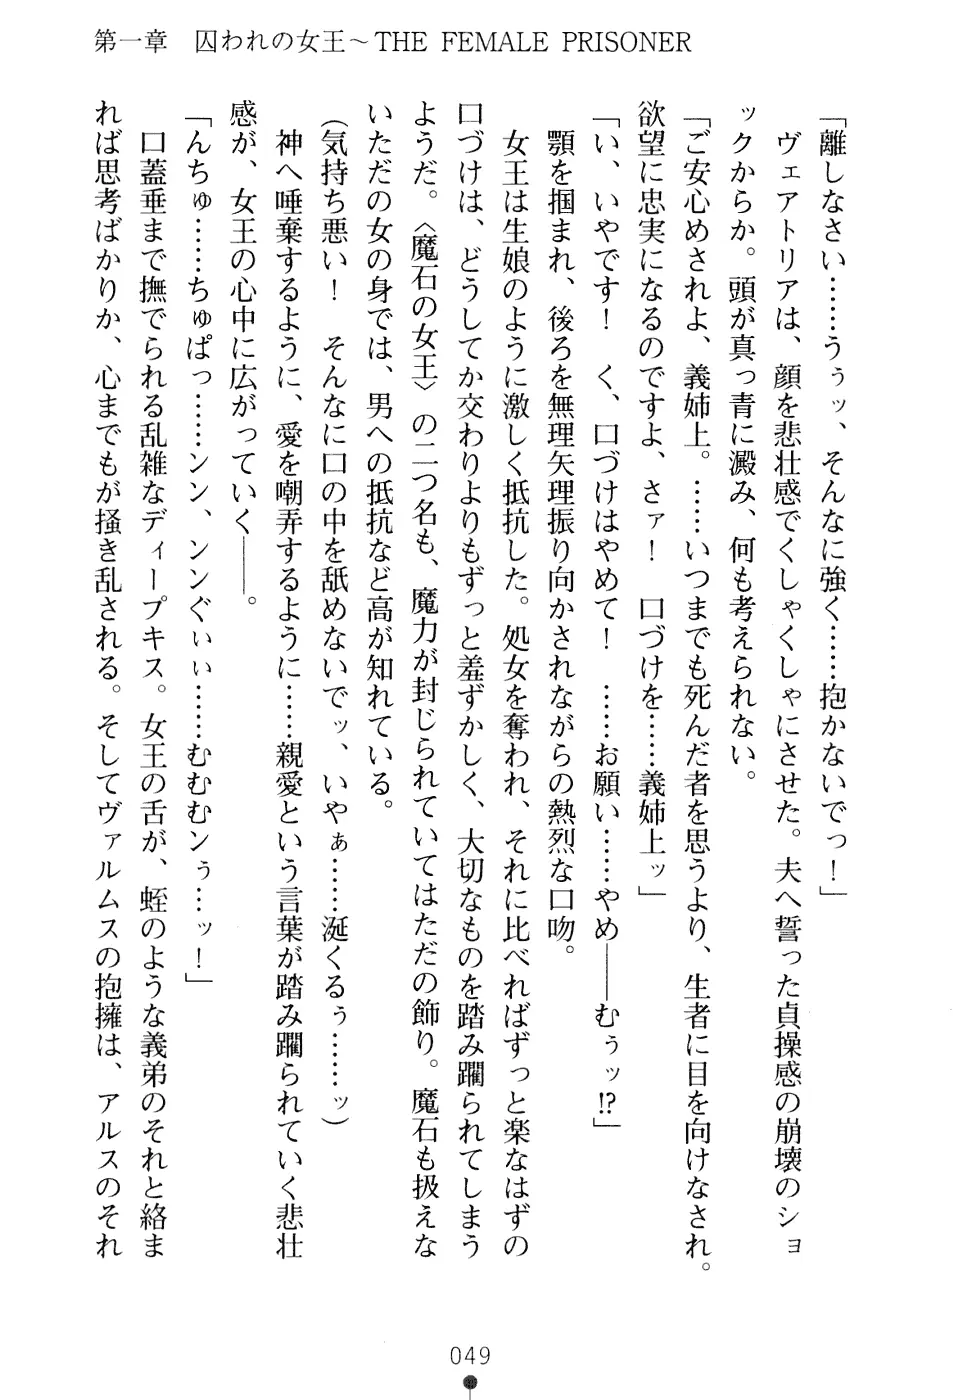 第一章　囚われの女王～THE FEMALE PRISONER
「離しなさい……うぅッ、そんなに強く……抱かないでっ！」
　ヴェアトリアは、顔を悲壮感でくしゃくしゃにさせた。夫へ誓った貞操感の崩壊のショ
ックからか。頭が真っ青に澱み、何も考えられない。
「ご安心めされよ、義姉上。……いつまでも死んだ者を思うより、生者に目を向けなされ。
欲望に忠実になるのですよ、さァ！　口づけを……義姉上ッ」
「い、いやです！　く、口づけはやめて！　……お願い……やめ――むぅッ!?」
　顎を掴まれ、後ろを無理矢理振り向かされながらの熱烈な口吻。
　女王は生娘のように激しく抵抗した。処女を奪われ、それに比べればずっと楽なはずの
口づけは、どうしてか交わりよりもずっと羞ずかしく、大切なものを踏み躙られてしまう
ようだ。〈魔石の女王〉の二つ名も、魔力が封じられていてはただの飾り。魔石も扱えな
いただの女の身では、男への抵抗など高が知れている。
（気持ち悪い！　そんなに口の中を舐めないでッ、いやぁ……涎くるぅ……ッ）
　神へ唾棄するように、愛を嘲弄するように……親愛という言葉が踏み躙られていく悲壮
感が、女王の心中に広がっていく――。
「んちゅ……ちゅぱっ……ンン、ンンぐぃぃ……むむむンぅ…ッ！」
　口蓋垂まで撫でられる乱雑なディープキス。女王の舌が、蛭のような義弟のそれと絡ま
れば思考ばかりか、心までもが掻き乱される。そしてヴァルムスの抱擁は、アルスのそれ
049